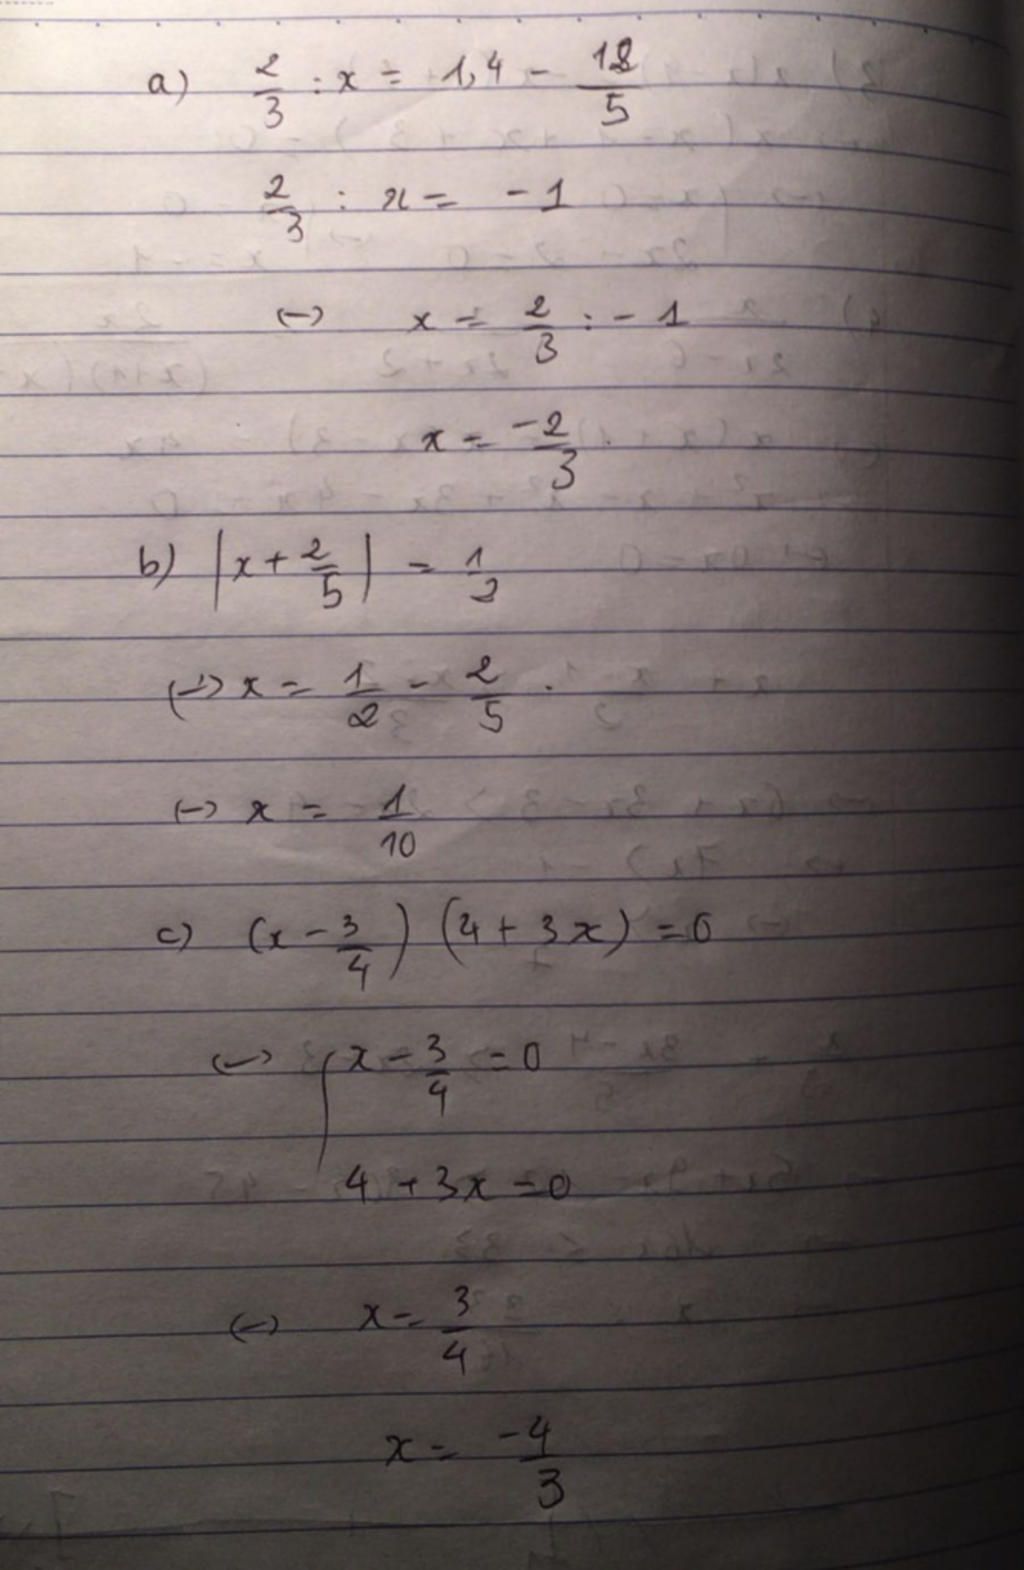 a) 2/3 : x = 1,4 - 12/5
2/3 : x = -1
<-> x = 2/3 : -1
x = -2/3
b) |x + 2/5| = 1/2
<-> x = 1/2 - 2/5 .
<-> x = 1/10
c) (x - 3/4) (4 + 3x) = 0
<-> [ x - 3/4 = 0
4 + 3x = 0
<-> x = 3/4
x = -4/3